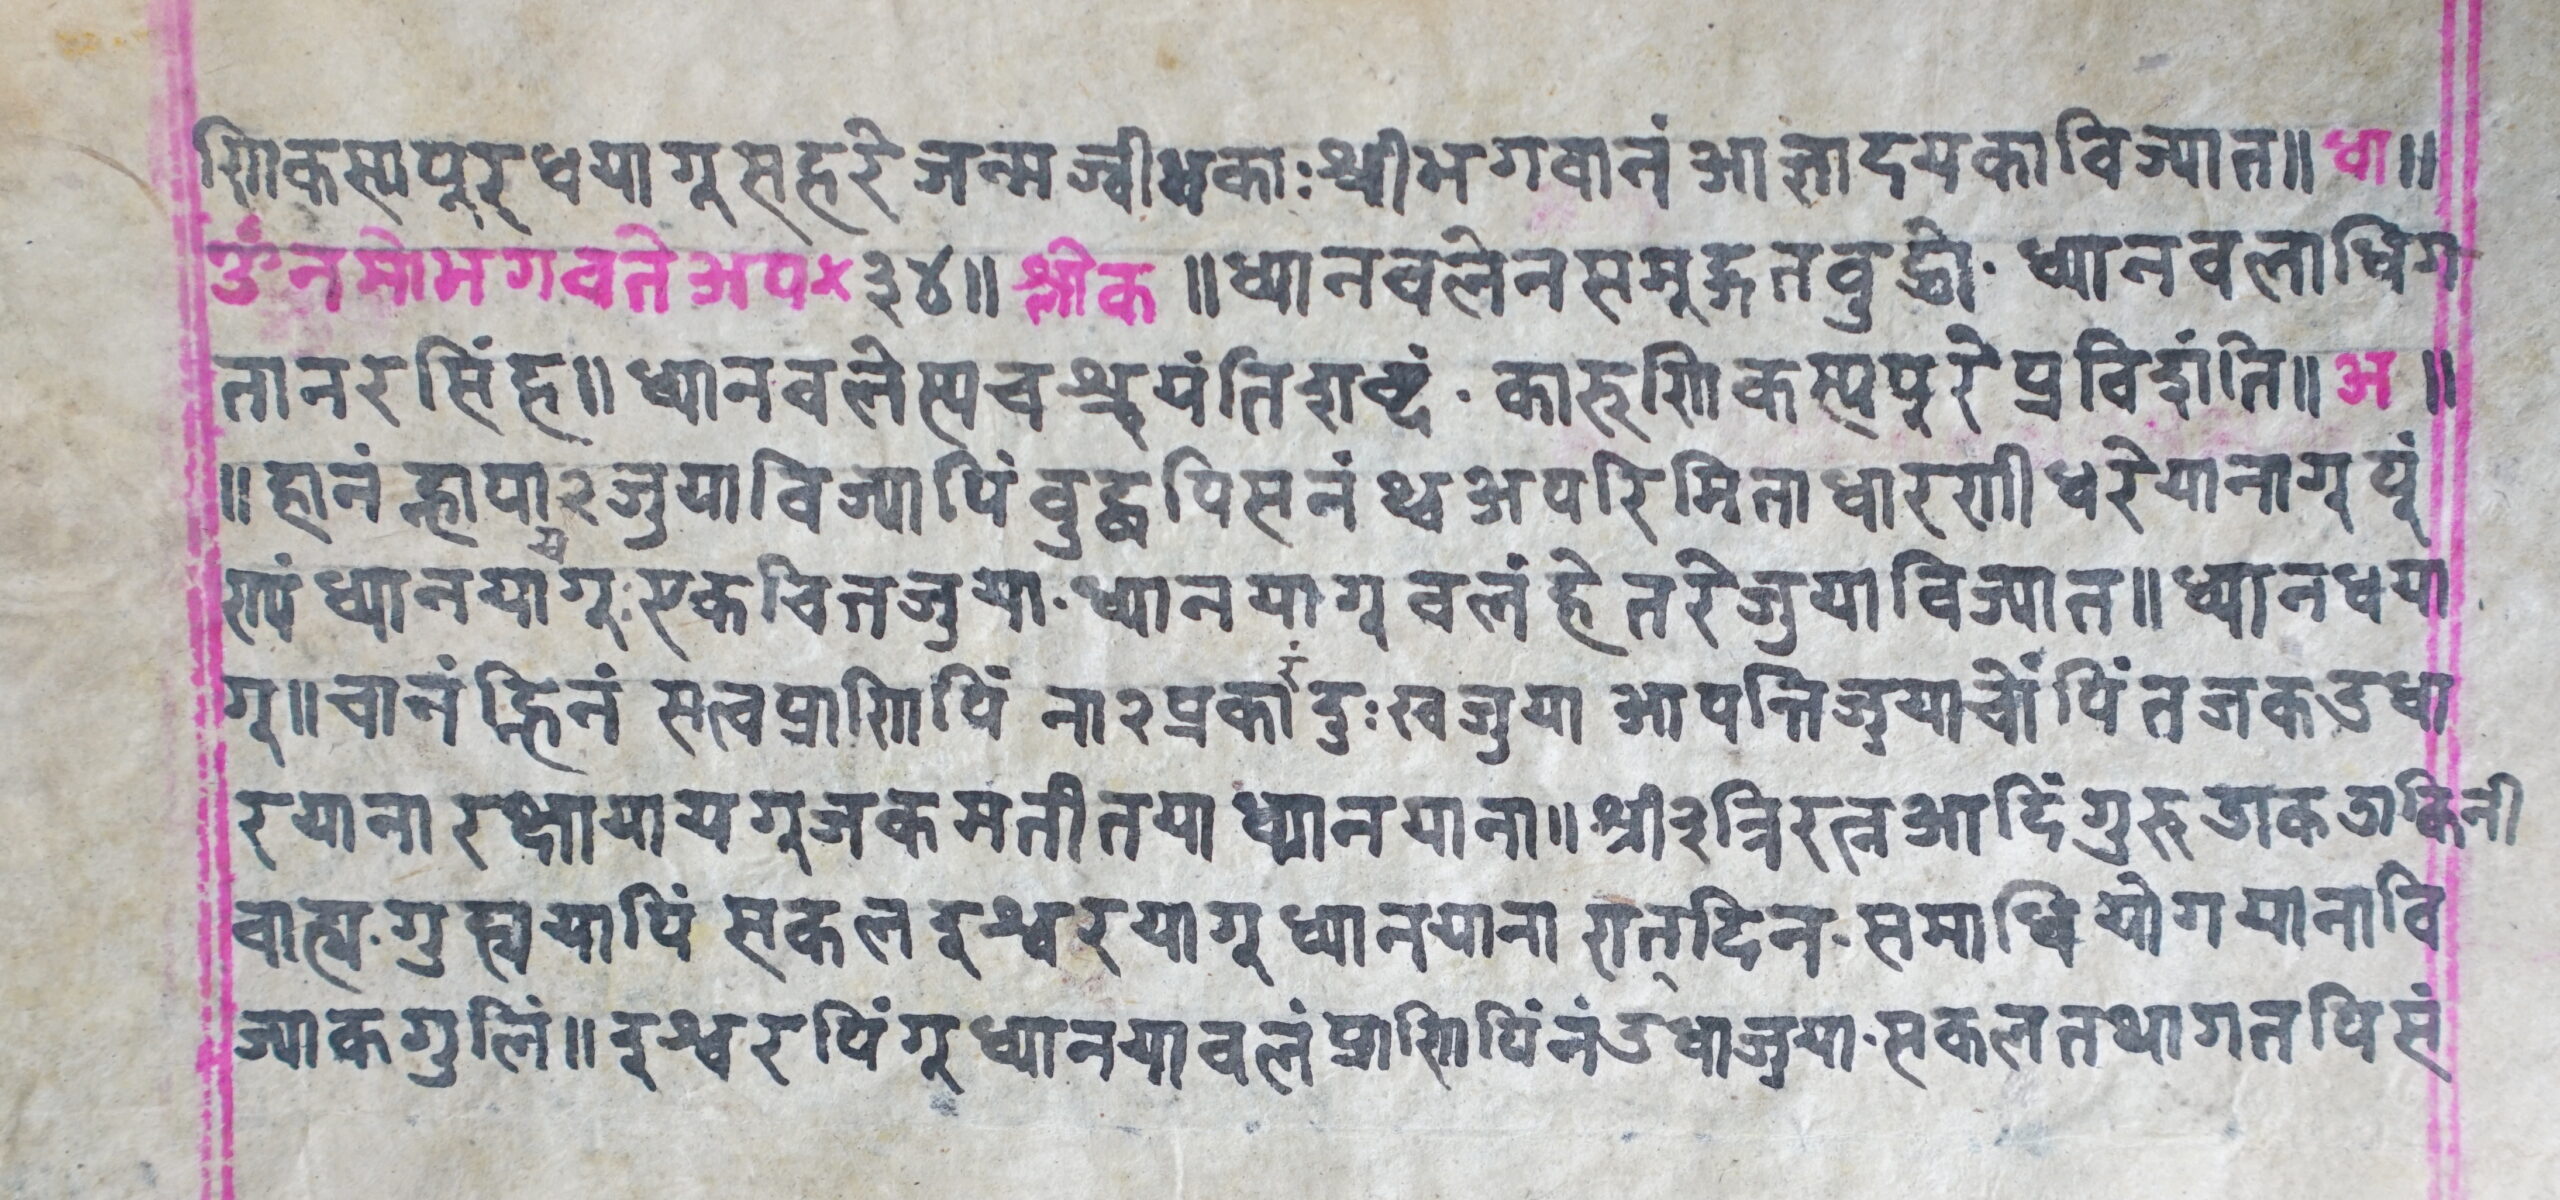 णिकस्यपुर्धयागू सहरे जन्मज्वीथ्वकाः श्रीभगवानं आज्ञादयकाविज्यात॥ धा॥
ॐ नमोभगवते अप× ३४॥ श्लोक ॥ ध्यानवलेनसमूद्गतवुद्धो· ध्यानवलाधिग
तानरसिंह॥ ध्यानवलेस्यचश्रुयंतिशव्दं· कारुणिकस्यपुरेप्रविशंति॥ अ ॥
॥ हानं ह्लापा२जुयाविज्यापिं वुद्धपिसनं थ्व अपरिमिताधारणीधरेयानागू पूं
णपं ध्यानयागूः एकचितजुया· ध्यानयागू वलं हे तरेजुयाविज्यात॥ ध्यानधया
गू॥ चानं ह्निनं सत्वप्राणिपिं ना२प्रकारं दुःखजुया आपत्तिजुयाचोंपिं तजकउधा
रयाना रक्षायायगूजक मतीतया ध्यानयाना॥ श्री३त्रिरत्नआदिं गुरुडाकडाकिनी
वाह्य·गुह्ययापिं सकल इश्वरयागू ध्यानयाना रात्दिन·समाधि योगयानावि
ज्याकगुलिं॥ इश्वरपिंगू ध्यानयावलं प्राणिपिंनं उधाजुया·सकलतथागतपिसं